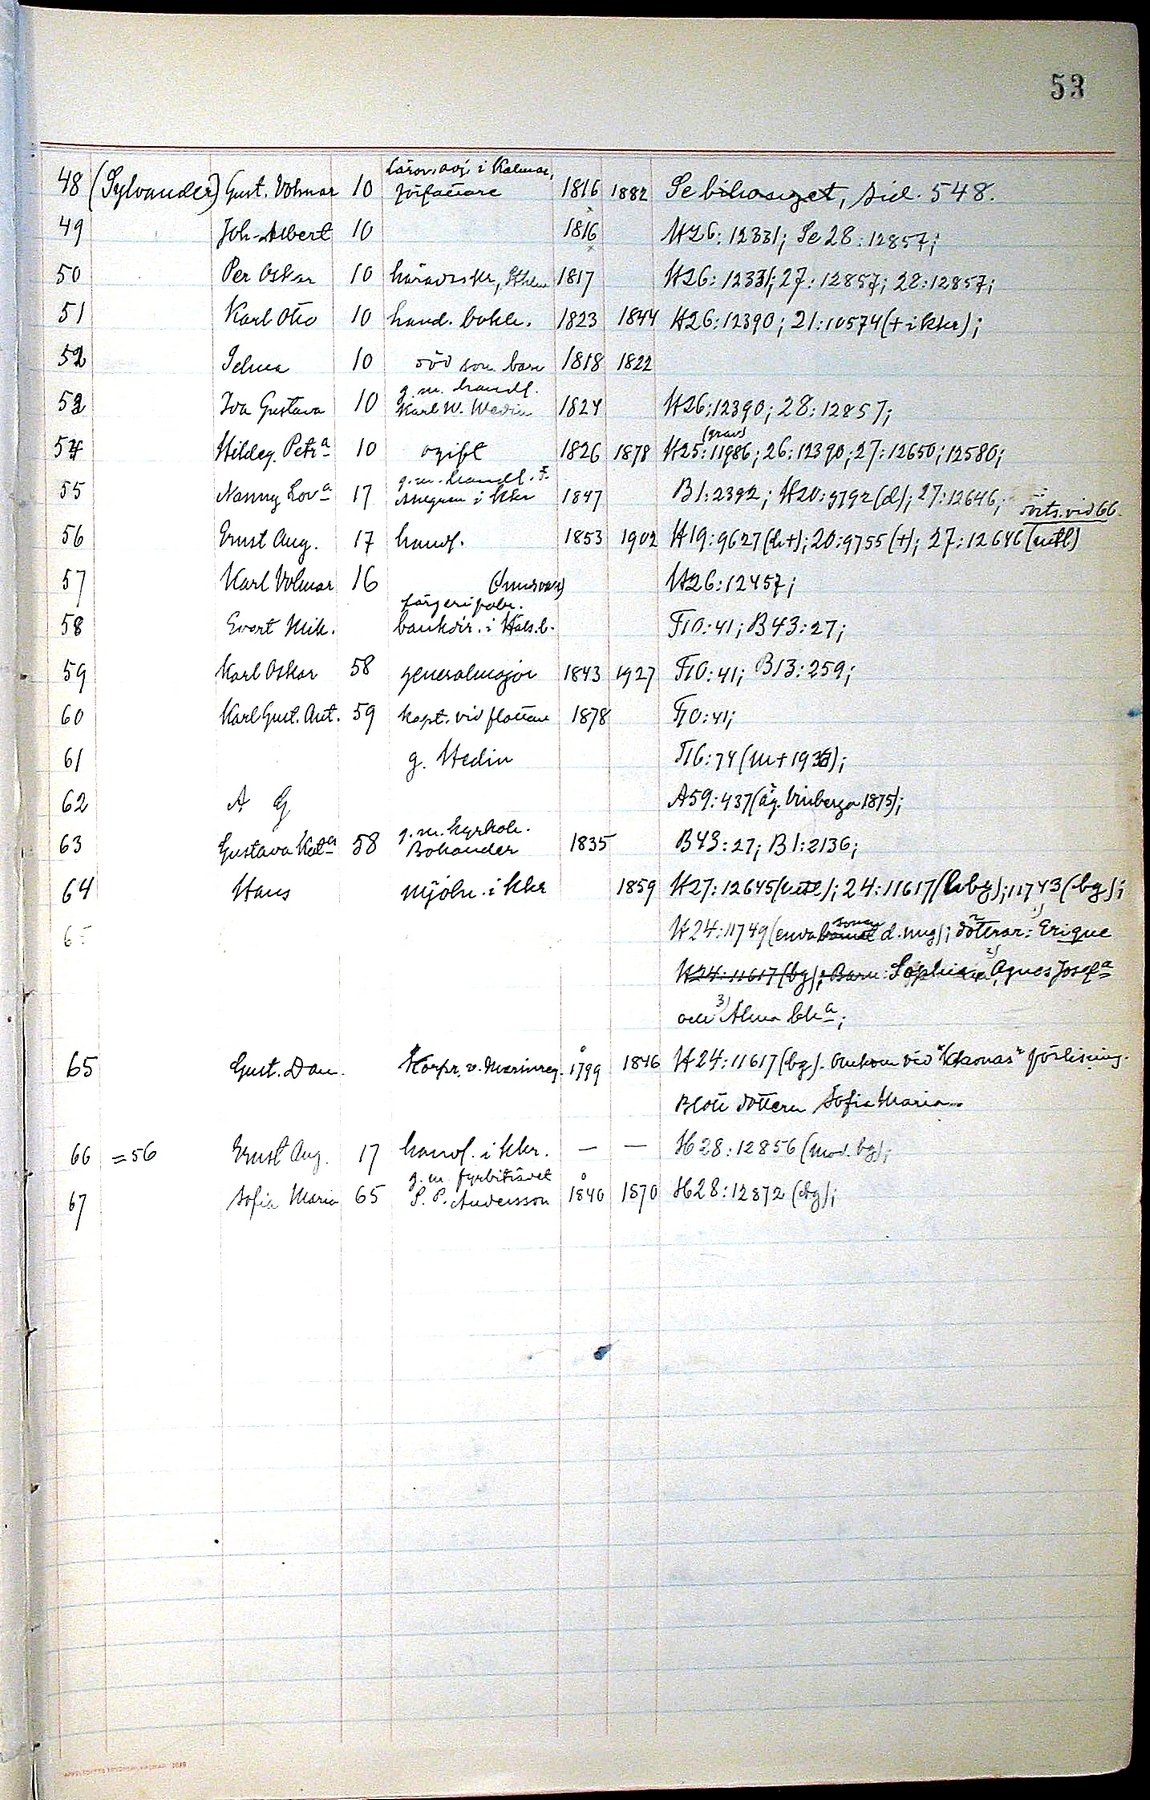 53
48 (Sylvander) Gust. Volmar 10 Lärov.adj. i Kalmar, författare 1816 1882 Se bihanget, sid. 548.
49 Joh. Albert 10 1816 H26: 12331; Se 28: 12857;
50 Per Oskar 10 häradsskr., 1817 H26: 12331; 27: 12857; 28: 12857;
51 Karl Otto 10 hand. bokh. 1823 1844 H26: 12390; 21: 10574 (+ i Kkr);
52 Selma 10 död som barn 1818 1822
53 Ida Gustava 10 g. m. handl. Karl W. Wedin 1824 H26: 12390; 28: 12857;
54 Hildeg. Petra 10 ogift 1826 1878 H25: (grav) 11986; 26: 12390; 27: 12650; 12580;
55 Nanny Lova 17 g. m. handl. F. i Kkr 1847 B1: 2392; H20: 9792 (d); 27: 12646;
forts. vid 66.
56 Ernst Aug. 17 handl. 1853 1902 H19: 9627 (h+); 20: 9755 (+); 27: 12646 (utl)
57 Karl Volmar 16 H26: 12457;
58 Evert Wilh. färgerifabr. bankdir. i Hels.b. F10: 41; B43: 27;
59 Karl Oskar 58 generalmajor 1843 1927 F10: 41; B13: 259;
60 Karl Gust. Ant. 59 kapt. vid flottan 1878 F10: 41;
61 g. Hedin F16: 74
62 A G A59: 437 (äg. Vinberga 1875);
63 Gustava Kata 58 g. m. kyrkoh. Bohander 1835 B43: 27; B1: 2136;
64 Hans mjöln. i Kkr 1859 H27: 12645 (utl); 24: 11617 (bg); 11743 (bg);
65 H24: 11749 (enda sonen d. ung); 2 döttrar: 1) Erique
H24: 11617 (bg); Barn: Sophia 2) Agnes Josefa
och 3) Alma Cha;
65 Gust. Dan. Korpr. v. Marinreg. 1799 1846 H24: 11617 (bg). Omkom vid "Karonas" förlisning.
Blott dottern Sofia Maria.
66 = 56 Ernst Aug. 17 handl. i Kkr. — — H28: 12856 (mod. bg);
67 Sofia Maria 65 g. m. fyrbiträdet S. P. Andersson 1840 1870 H28: 12872 (bg);